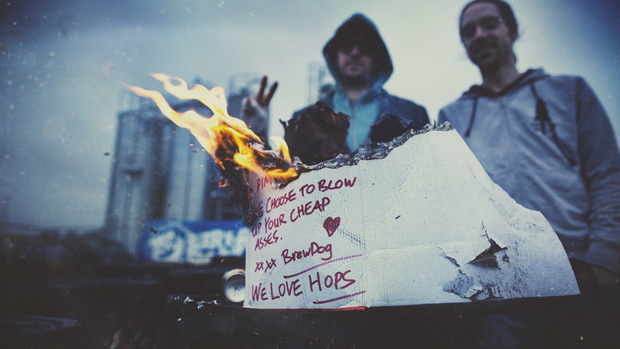 CHOOSE TO BLOW
UP YOUR CHEAP
ASSES. ♥
xxxx BREWDOG
WE LOVE HOPS